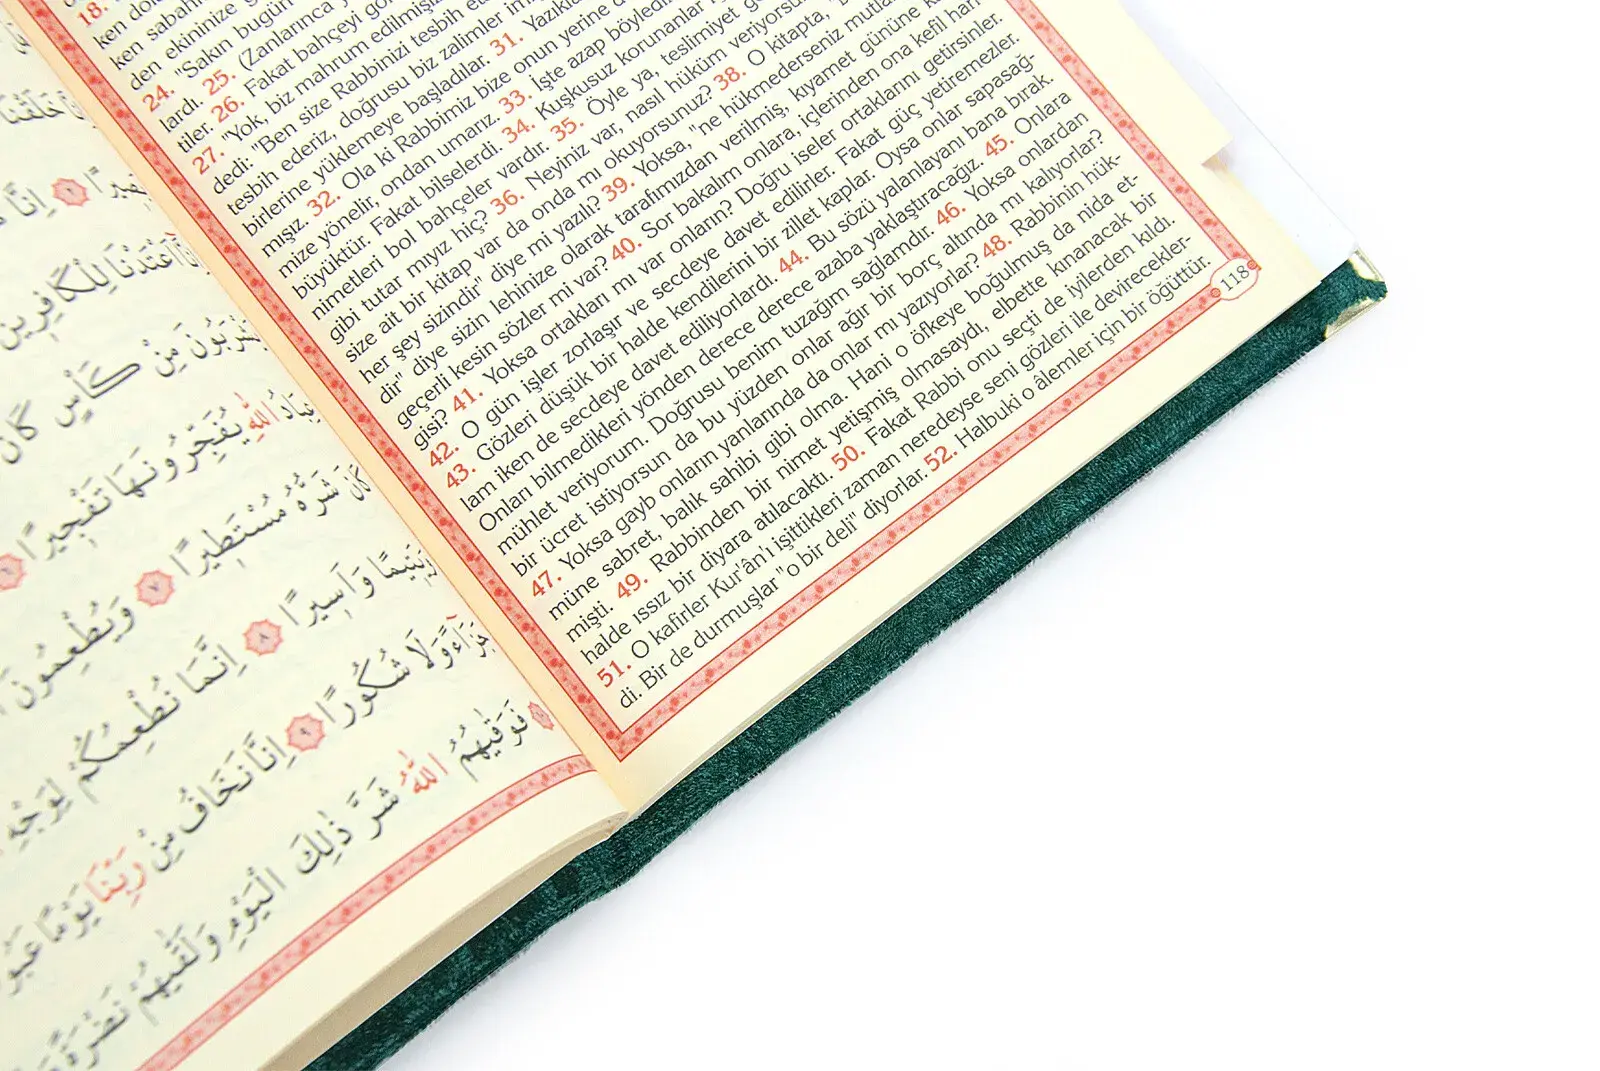 18.
ken
ken sabahı
den ekininize
24. "Sakın bugün
lardı. 25. (Zanlarınca
tiler. 26. Fakat bahçeyi
27. "Yok, biz mahrum edilmişiz
dedi: "Ben size Rabbinizi tesbih
tesbih ederiz, doğrusu biz zalimler
birlerine yüklemeye başladılar. 31.
mışız. 32. Ola ki Rabbimiz bize onun yerine
mize yönelir, ondan umarız. 33. İşte azap
büyüktür. Fakat bilselerdi. 34. Kuşkusuz korunanlar
nimetleri bol bahçeler vardır. 35. Öyle ya, teslimiyet
gibi tutar mıyız hiç? 36. Neyiniz var, nasıl hüküm
size ait bir kitap var da onda mı okuyorsunuz? 38. O kitapta,
her şey sizindir" diye mi yazılı? 39. Yoksa, "ne hükmederseniz
dir" diye sizin lehinize olarak tarafımızdan verilmiş, kıyamet gününe
geçerli kesin sözler mi var? 40. Sor bakalım onlara, içlerinden ona kefil han-
gisi? 41. Yoksa ortakları mı var onların? Doğru iseler ortaklarını getirsinler.
42. O gün işler zorlaşır ve secdeye davet edilirler. Fakat güç yetiremezler.
43. Gözleri düşük bir halde kendilerini bir zillet kaplar. Oysa onlar sapasağ-
lam iken de secdeye davet ediliyorlardı. 44. Bu sözü yalanlayanı bana bırak.
Onları bilmedikleri yönden derece derece azaba yaklaştıracağız. 45. Onlara
mühlet veriyorum. Doğrusu benim tuzağım sağlamdır. 46. Yoksa onlardan
bir ücret istiyorsun da bu yüzden onlar ağır bir borç altında mı kalıyorlar?
47. Yoksa gayb onların yanlarında da onlar mı yazıyorlar? 48. Rabbinin hük-
müne sabret, balık sahibi gibi olma. Hani o öfkeye boğulmuş da nida et-
mişti. 49. Rabbinden bir nimet yetişmiş olmasaydı, elbette kınanacak bir
halde ıssız bir diyara atılacaktı. 50. Fakat Rabbi onu seçti de iyilerden kıldı.
51. O kafirler Kur'ân'ı işittikleri zaman neredeyse seni gözleri ile devirecekler-
di. Bir de durmuşlar "o bir deli" diyorlar. 52. Halbuki o âlemler için bir öğüttür.
118
اِنَّا
اَعْتَدْنَا لِلْكَافِرِينَ
مِنْ كَأْسٍ كَانَ
اللّٰهِ يُفَجِّرُونَهَا تَفْجِيرًا ٦
كَانَ شَرُّهُ مُسْتَطِيرًا ٧ وَيُطْعِمُونَ
وَيَتِيمًا وَاَسِيرًا ٨ اِنَّمَا نُطْعِمُكُمْ لِوَجْهِ
جَزَاءً وَلَا شُكُورًا ٩ اِنَّا نَخَافُ مِنْ رَبِّنَا يَوْمًا
فَوَقٰيهُمُ اللّٰهُ شَرَّ ذٰلِكَ الْيَوْمِ وَلَقّٰيهُمْ نَضْرَةً